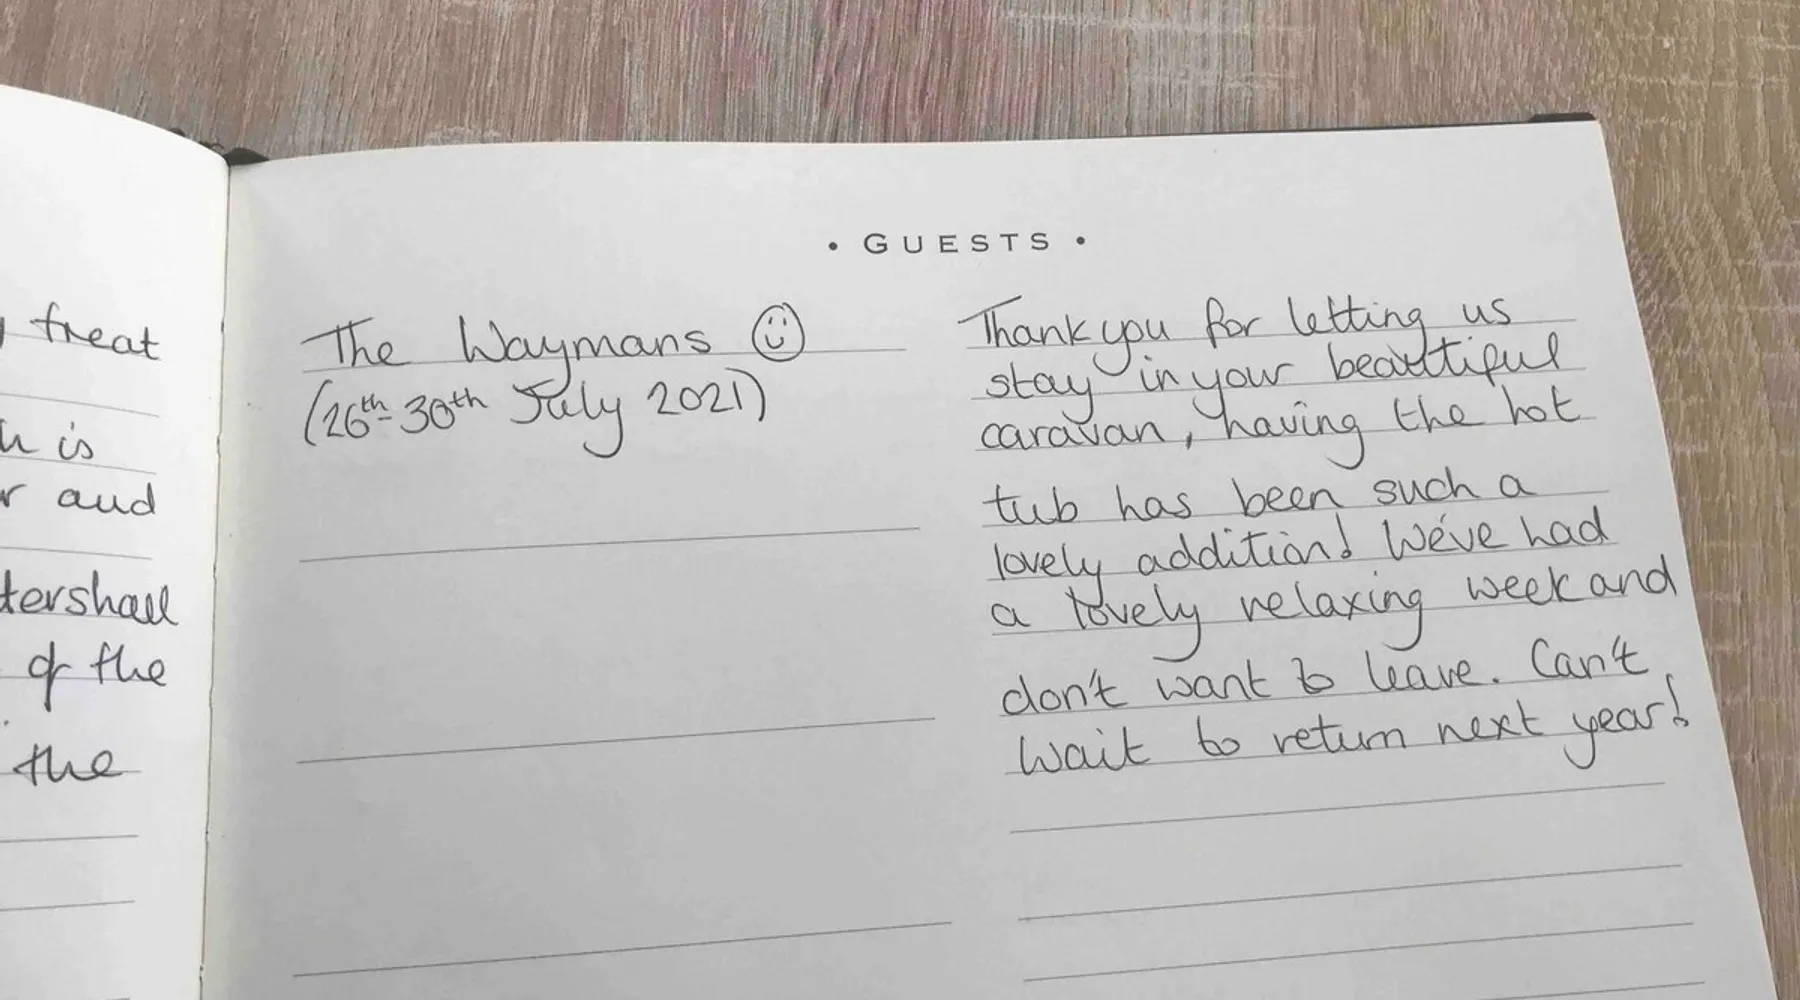 treat
is
and
tershall
of the
the
• GUESTS •
The Waymans ☺
(26th-30th July 2021)
Thank you for letting us
stay in your beautiful
caravan, having the hot
tub has been such a
lovely addition! We've had
a lovely relaxing week and
don't want to leave. Can't
wait to return next year!